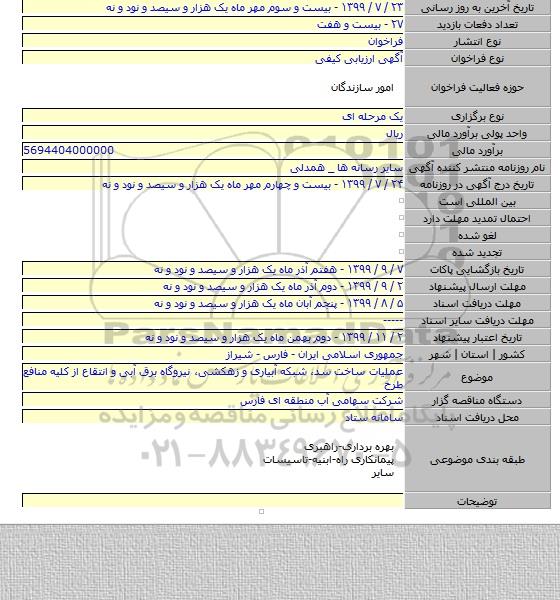 تاریخ آخرین به روز رسانی ۲۳ / ۷ / ۱۳۹۹ - بیست و سوم مهر ماه یک هزار و سیصد و نود و نه
تعداد دفعات بازدید ۲۷ - بیست و هفت
نوع انتشار فراخوان
نوع فراخوان آگهی ارزیابی کیفی
حوزه فعالیت فراخوان امور سازندگان
نوع برگزاری یک مرحله ای
واحد پولی برآورد مالی ریال
برآورد مالی 5694404000000
نام روزنامه منتشر کننده آگهی سایر رسانه ها _ همدلی
تاریخ درج آگهی در روزنامه ۲۴ / ۷ / ۱۳۹۹ - بیست و چهارم مهر ماه یک هزار و سیصد و نود و نه
بین المللی است
احتمال تمدید مهلت دارد
لغو شده
تجدید شده
تاریخ بازگشایی پاکات ۷ / ۹ / ۱۳۹۹ - هفتم آذر ماه یک هزار و سیصد و نود و نه
مهلت ارسال پیشنهاد ۲ / ۹ / ۱۳۹۹ - دوم آذر ماه یک هزار و سیصد و نود و نه
مهلت دریافت اسناد ۵ / ۸ / ۱۳۹۹ - پنجم آبان ماه یک هزار و سیصد و نود و نه
مهلت دریافت سایر اسناد -----
تاریخ اعتبار پیشنهاد ۲ / ۱۱ / ۱۳۹۹ - دوم بهمن ماه یک هزار و سیصد و نود و نه
کشور | استان | شهر جمهوری اسلامی ایران - فارس - شیراز
موضوع عملیات ساخت سد، شبکه آبیاری و زهکشی، نیروگاه برق آبی و انتقاع از کلیه منافع
طرح
دستگاه مناقصه گزار شرکت سهامی آب منطقه ای فارس
محل دریافت اسناد سامانه ستاد
طبقه بندی موضوعی بهره برداری-راهبری
پیمانکاری راه-ابنیه-تاسیسات
سایر
توضیحات
ParsNamadData
پایگاه اطلاع رسانی مناقصه و مزایده